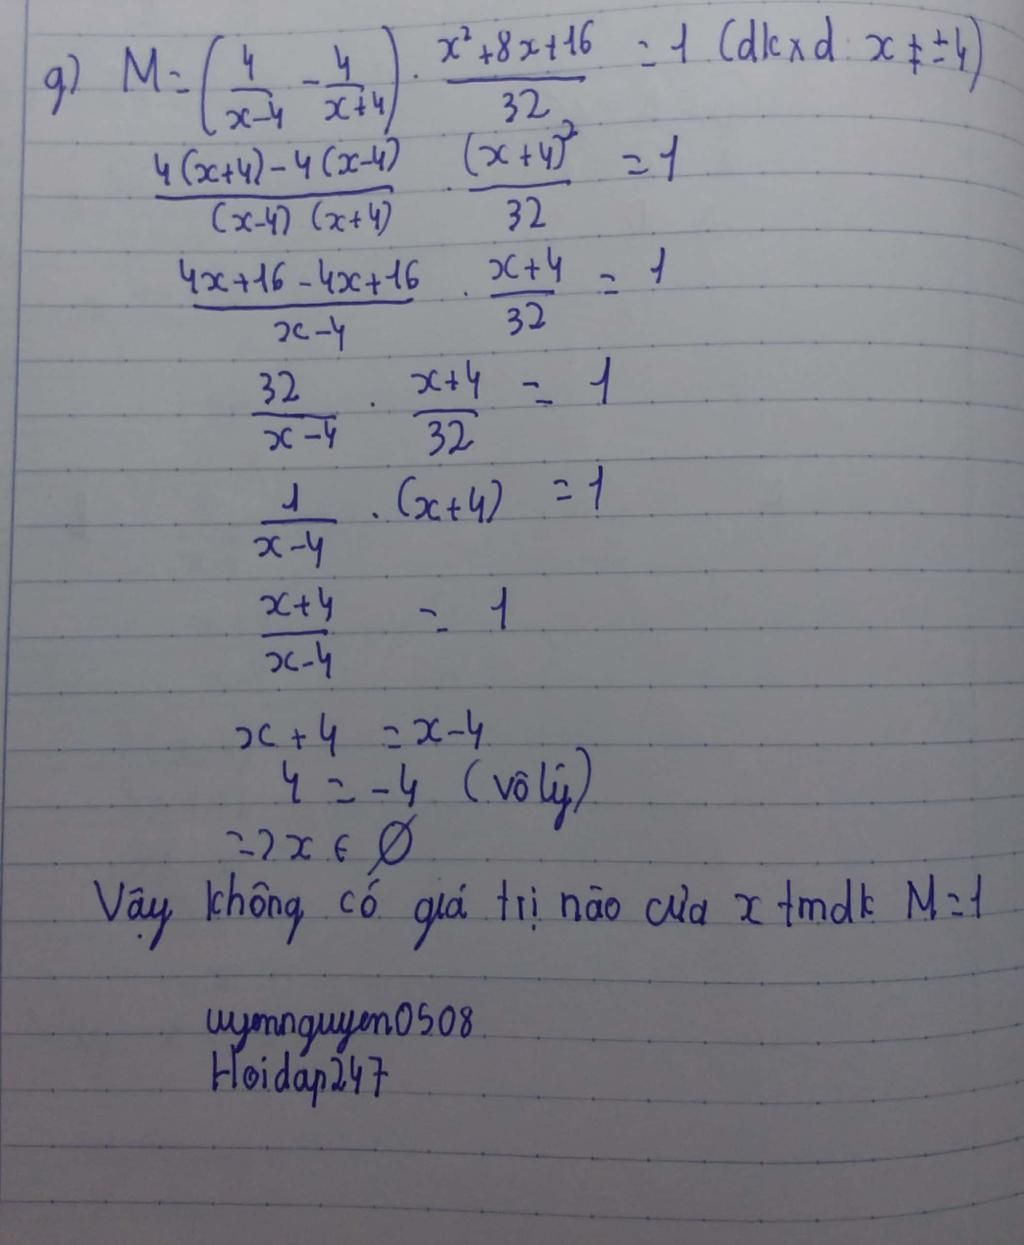 g) M = (4/(x-4) - 4/(x+4)) . (x²+8x+16)/32 = 1 (dkxd: x ≠ ±4)
(4(x+4) - 4(x-4))/((x-4)(x+4)) . (x+4)²/32 = 1
(4x+16-4x+16)/(x-4) . (x+4)/32 = 1
32/(x-4) . (x+4)/32 = 1
1/(x-4) . (x+4) = 1
(x+4)/(x-4) = 1
x+4 = x-4
4 = -4 (vô lý)
=> x ∈ ∅
Vậy không có giá trị nào của x tmdk M=1
uyennguyen0508
Hoidap247